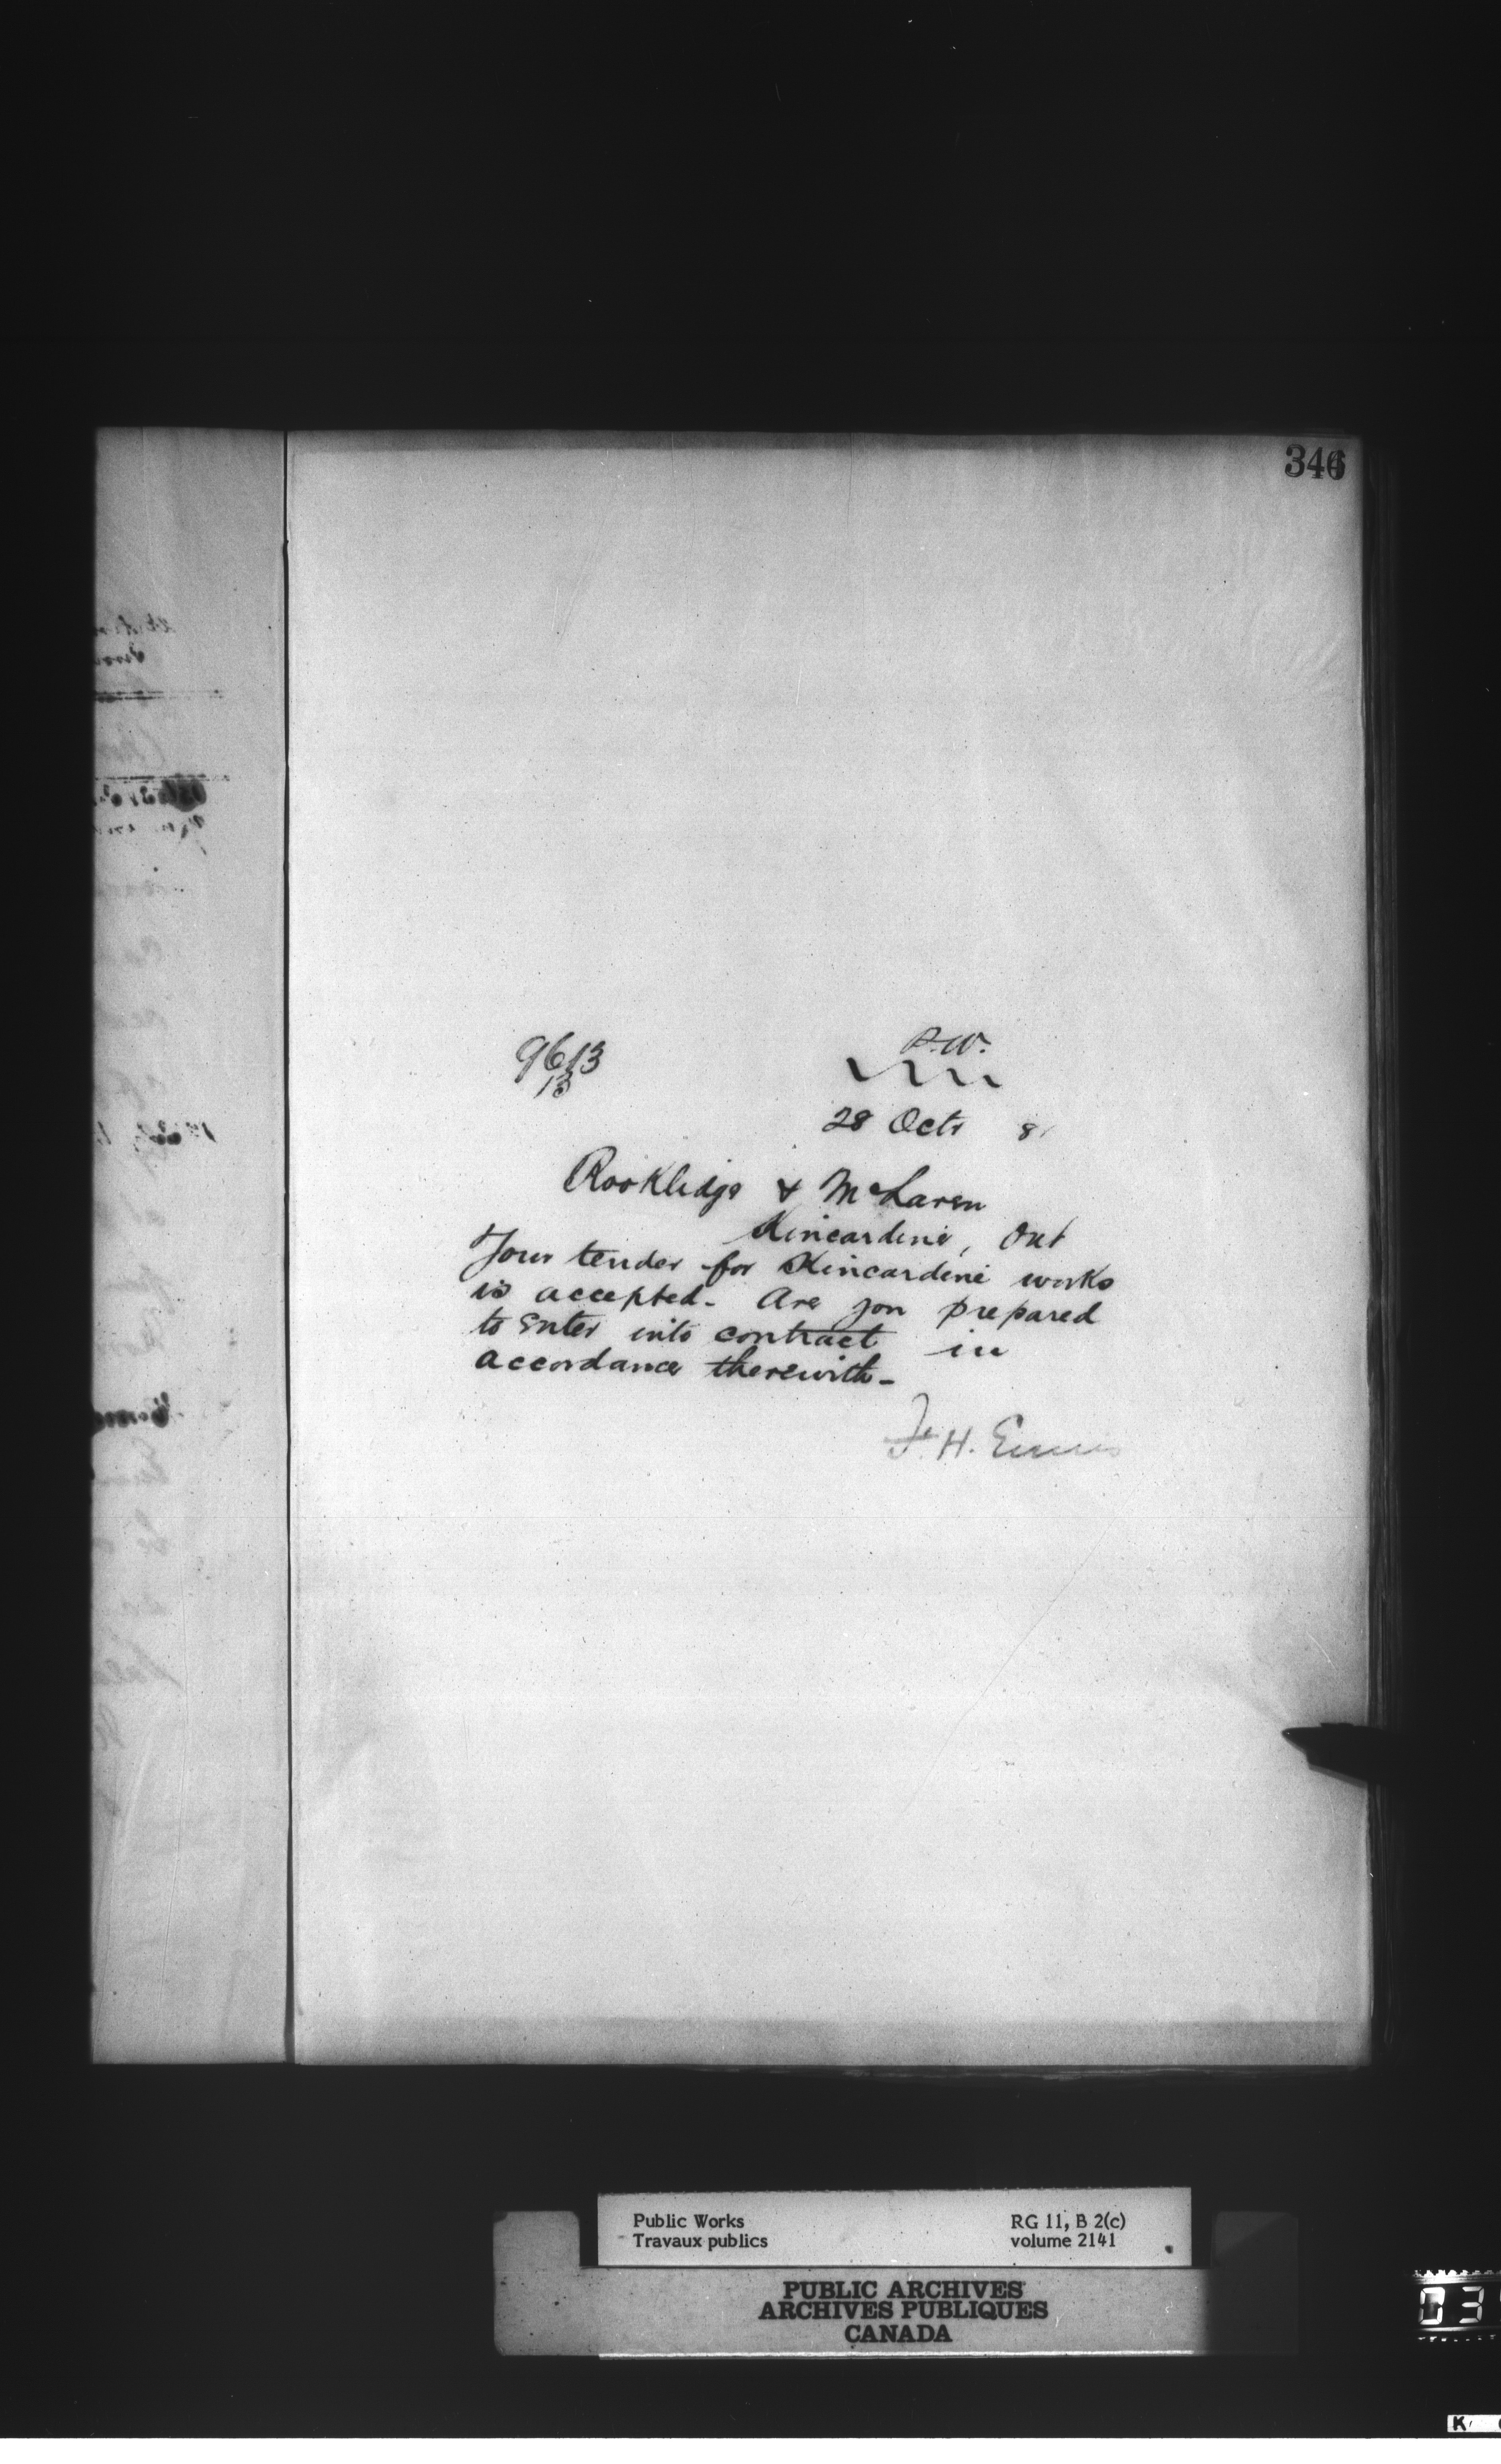 346
9613
13
P.W.
28 Octr 81
Rooklidge & McLaren
Kincardine, Ont
Your tender for Kincardine works
is accepted - Are you prepared
to enter into contract in
accordance therewith -
F. H. Ennis
Public Works
Travaux publics
RG 11, B 2(c)
volume 2141
PUBLIC ARCHIVES
ARCHIVES PUBLIQUES
CANADA
03
K